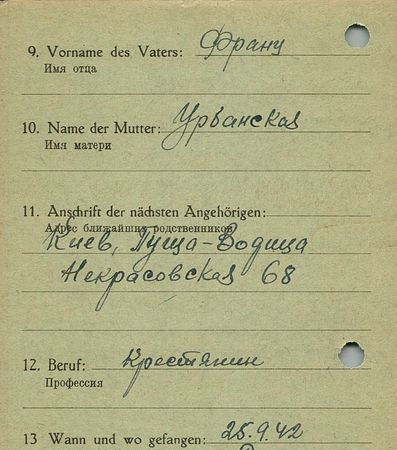 9. Vorname des Vaters: Франц
Имя отца
10. Name der Mutter: Урбанская
Имя матери
11. Anschrift der nächsten Angehörigen:
Адрес ближайших родственников
Киев, Пуща-Водица
Некрасовская 68
12. Beruf: Крестянин
Профессия
13 Wann und wo gefangen: 25.9.42